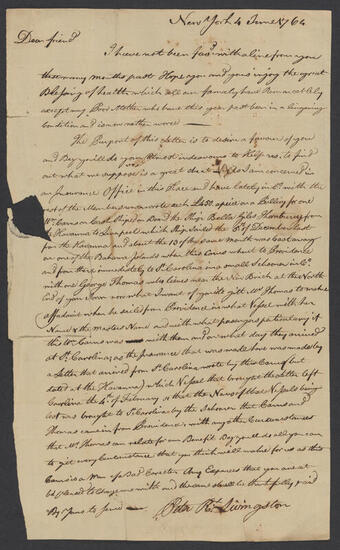 New York 4 June 1764
Dear friend
I have not been favd with a line from you
these many months past Hope you and yours injoy the great
Blessing of health, which all our family have Remarcably
except my Poor Mother who have this year past been in a lingering
Condition and is now rather worse
The Purport of this Letter is to desire a favour of you
and Beg you'll do your utmost endeavours to Help us to find
out what we suppose is a great cheat Vizt I am concerned in
an Insurance Office in this Place and have lately in Co. with the
rest of the Men Insurance wrote each £450 apiece on a Policy for one
Wm Carns on Cash Shiped on Board the Ship Bella Giles Hambury from
the Havanna to Liverpool which Ship sailed the 3d of December last
from the Havanna and about the 10 of the same Month was Cast away
on one of the Bahama Islands when this Carns went to Providence
and from there immediately to So Carolina in a small Schooner in Co.
with one George Thomas who lives near the New Brick at the North
End of your Town now what I want of you is to get Mr Thomas to make
affadavit when he sailed from Providence in what Vessel with her
Name & the Masters Name and with what passengers particularly if
this Wm Carns was with them and on what day they arrived
at So Carolina; as the Insurance that was made here was made by
a Letter that arrived from So Carolina wrote by this Carns (but
dated at the Havanna) which Vessel that brought the letter left
Carolina the 4th of February, & that the News of that Vessels being
Lost was brought to So Carolina by the Schooner that Carns and
Thomas came in from Providence, with any other Circumstances
that Mr Thomas can relate for our Benefit Beg you'll do all you can
to get every Circumstance that you think will make for us as this
Carns is a Man of a Bad Carecter Any Expences that you are at
be pleased to charge me with and the same shall be thankfully paid
By Yours to Serve
Peter Rt. Livingston